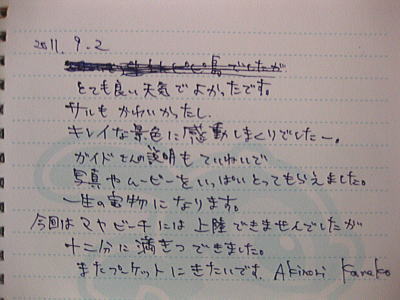 2011. 9. 2
ピピ島でしたが
とても良い天気でよかったです。
サルもかわいかったし、
キレイな景色に感動しまくりでしたー。
ガイドさんの説明もていねいで
写真やムービーをいっぱいとってもらえました。
一生の宝物になります。
今回はマヤビーチには上陸できませんでしたが
十二分に満きつできました。
またプーケットにきたいです。 Akinori Kanako